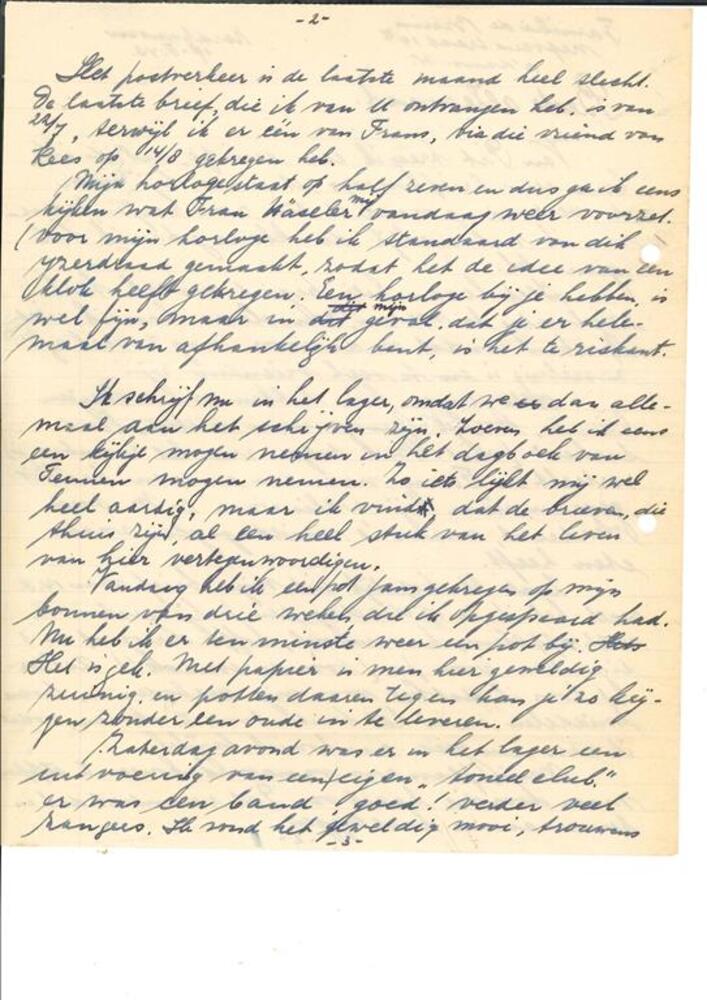 -2-
Het postverkeer is de laatste maand heel slecht.
De laatste brief, die ik van U ontvangen heb, is van
22/7, terwijl ik er één van Frans, via die vriend van
Kees op 14/8 gekregen heb.
Mijn horloge staat op half zeven en dus ga ik eens
kijken wat Frau Häseler mij vandaag weer voorzet.
(Voor mijn horloge heb ik standaard van dik
yzerdraad gemaakt, zodat het de idee van een
klok heeft gekregen. Een horloge bij je hebben, is
wel fijn, maar in dit mijn geval, dat je er hele-
maal van afhankelijk bent, is het te riskant.
Ik schrijf nu in het lager, omdat we er dan alle-
maal aan het schijven zijn. Zoeven heb ik eens
een kijkje mogen nemen in het dagboek van
Teunen mogen nemen. Zo iets lijkt mij wel
heel aardig, maar ik vind, dat de brieven, die
thuis zijn, al een heel stuk van het leven
van hier vertegenwoordigen.
Vandaag heb ik een pot jam gekregen op mijn
bonnen van drie weken, die ik opgespaard had.
Nu heb ik er ten minste weer een pot bij.
Het is gek. Met papier is men hier geweldig
zuinig en potten daaren tegen kan je zo krij-
gen zonder een oude in te leveren.
Zaterdag avond was er in het lager een
uitvoering van een eigen "toneelclub."
er was een band, goed! verder veel
zangers. Ik vond het geweldig mooi, trouwens
-3-